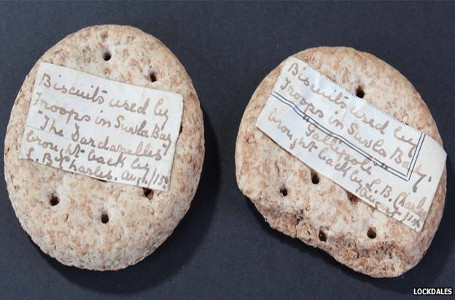 Biscuits used by
Troops in Suvla Bay
"The Dardanelles"
brought back by
Charles. Aug
Biscuits used by
Troops in Suvla Bay,
Gallipoli
brought back by L. B. Charles
LOCKDALES